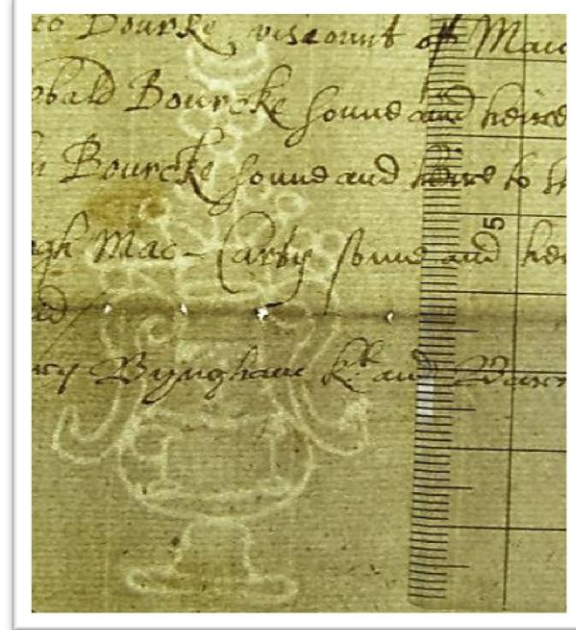 to Bourke, viscount of Mau
obald Bourcke sonne and heire
n Bourcke sonne and heire to th
gh Mac-Carty sonne and hei
ed/
ry Byngham kt and Barr
5